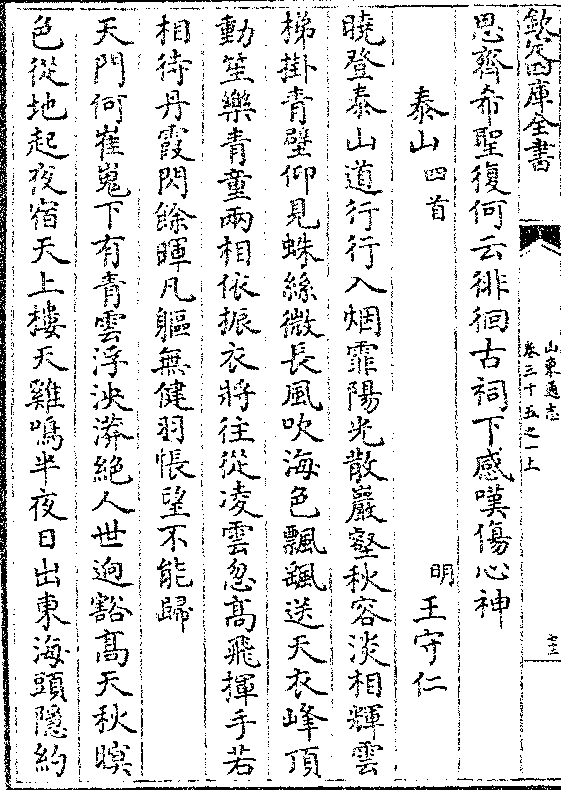 欽定四庫全書
山東通志
卷三十五之一上
思齊希聖復何云徘徊古祠下感嘆傷心神
泰山四首 明 王守仁
曉登泰山道行行入烟霏陽光散巖壑秋容淡相輝雲
梯掛青壁仰見蛛絲微長風吹海色飄颻送天衣峰頂
動笙樂青童兩相依振衣將往從凌雲忽髙飛揮手若
相待丹霞閃餘暉凡軀無健羽悵望不能歸
天門何崔嵬下有青雲浮泱漭絕人世逈豁髙天秋暝
色從地起夜宿天上樓天雞鳴半夜日出東海頭隱約